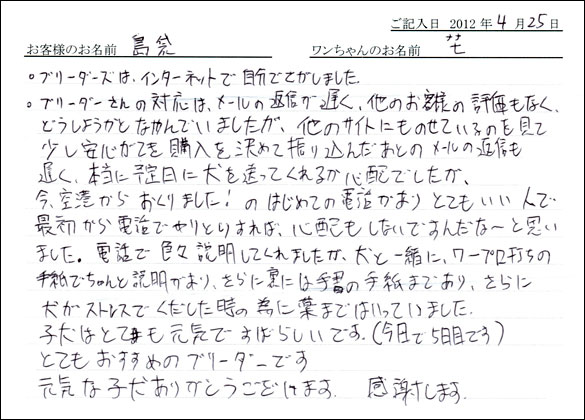 ご記入日 2012 年 4 月 25 日
お客様のお名前 島袋 ワンちゃんのお名前
。ブリーダーズは、インターネットで自分でさがしました。
。ブリーダーさんの対応は、メールの返信が遅く、他のお客様の評価もなく、
どうしようかとなやんでいましたが、他のサイトにものせているのを見て
少し安心ができ購入を決めて振り込んだあとのメールの返信も
遅く、本当に予定日に犬を送ってくれるか心配でしたが、
今、空港からおくりました!のはじめての電話がありとてもいい人で
最初から電話でやりとりすれば、心配もしないですんだな〜と思い
ました。電話で色々説明してくれましたが、犬と一緒に、ワープロ打ちの
手紙でちゃんと説明があり、さらに裏には手書の手紙まであり、さらに
犬がストレスでくだした時の為に薬まではいっていました。
子犬はとても元気ですばらしいです。(今日で5日目です)
とてもおすすめのブリーダーです
元気な子犬ありがとうございます。 感謝します。